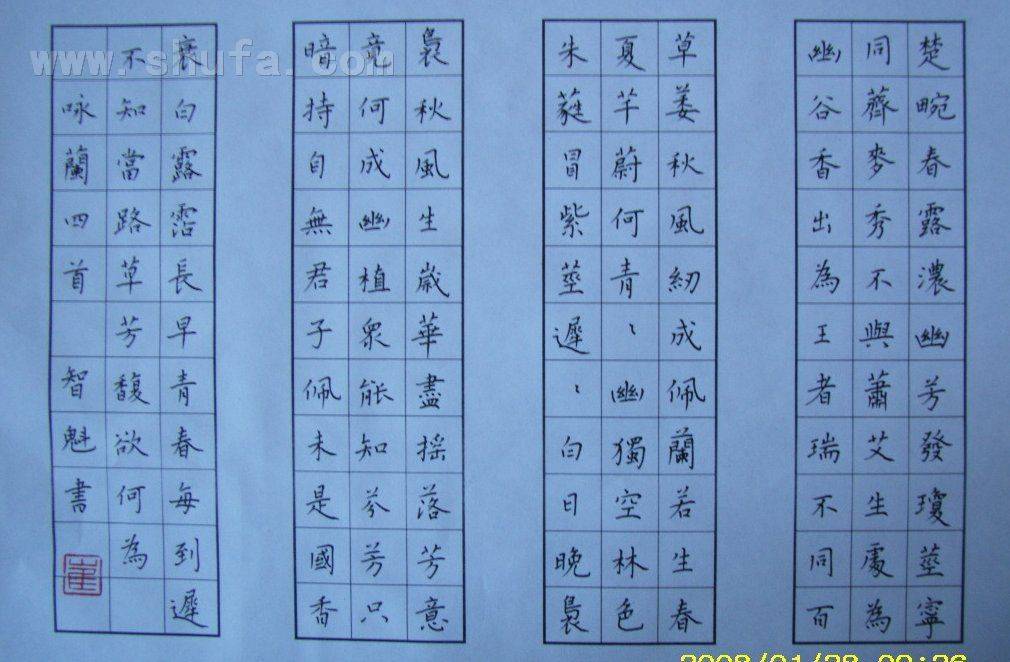 楚畹春露濃幽芳發瓊莖寧
同薺麥秀不與蕭艾生處為
幽谷香出為王者瑞不同百
草萎秋風紉成佩蘭若生春
夏芊蔚何青〻幽獨空林色
朱蕤冒紫莖遲〻白日晚裊
裊秋風生歲華盡搖落芳意
竟何成幽植眾能知芬芳只
暗持自無君子佩未是國香
衰白露霑長早青春每到遲
不知當路草芳馥欲何為
咏蘭四首 智魁書
崔
www.shufa.com